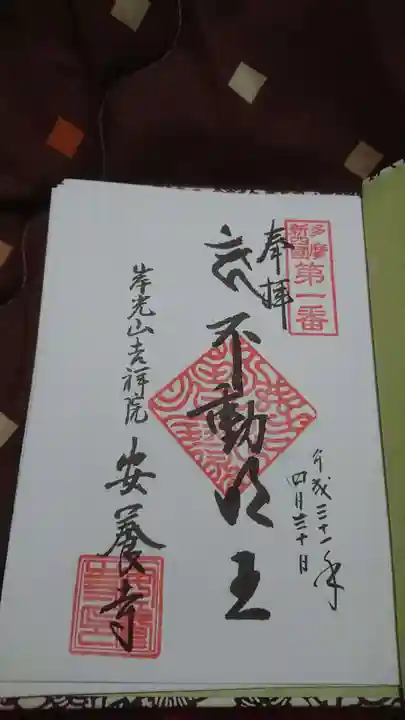 多摩
新四国
第一番
奉拝
不動明王
平成三十一年
四月三十日
岸光山吉祥院
安養寺